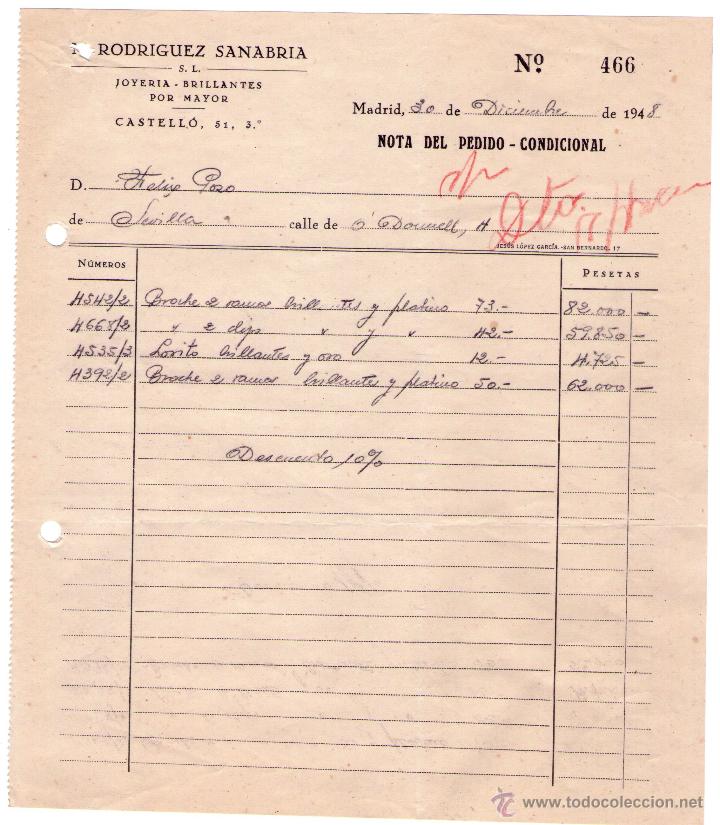 RODRIGUEZ SANABRIA
S. L.
JOYERIA - BRILLANTES
POR MAYOR
CASTELLÓ, 51, 3.º
Nº 466
Madrid, 30 de Diciembre de 1948
NOTA DEL PEDIDO - CONDICIONAL
D. Felix Pozo
de Sevilla calle de O'Donnell, 4
JESÚS LÓPEZ GARCÍA.-SAN BERNARDO, 17
NÚMEROS PESETAS
4542/2 Broche 2 ramos brillantes y platino 73.- 82.000 -
4668/2 " 2 clips " y " 42.- 59.850 -
4535/3 Lorito brillantes y oro 12.- 4.725 -
4392/2 Broche 2 ramos brillantes y platino 50.- 62.000 -
Descuento 10%
TC www.todocoleccion.net